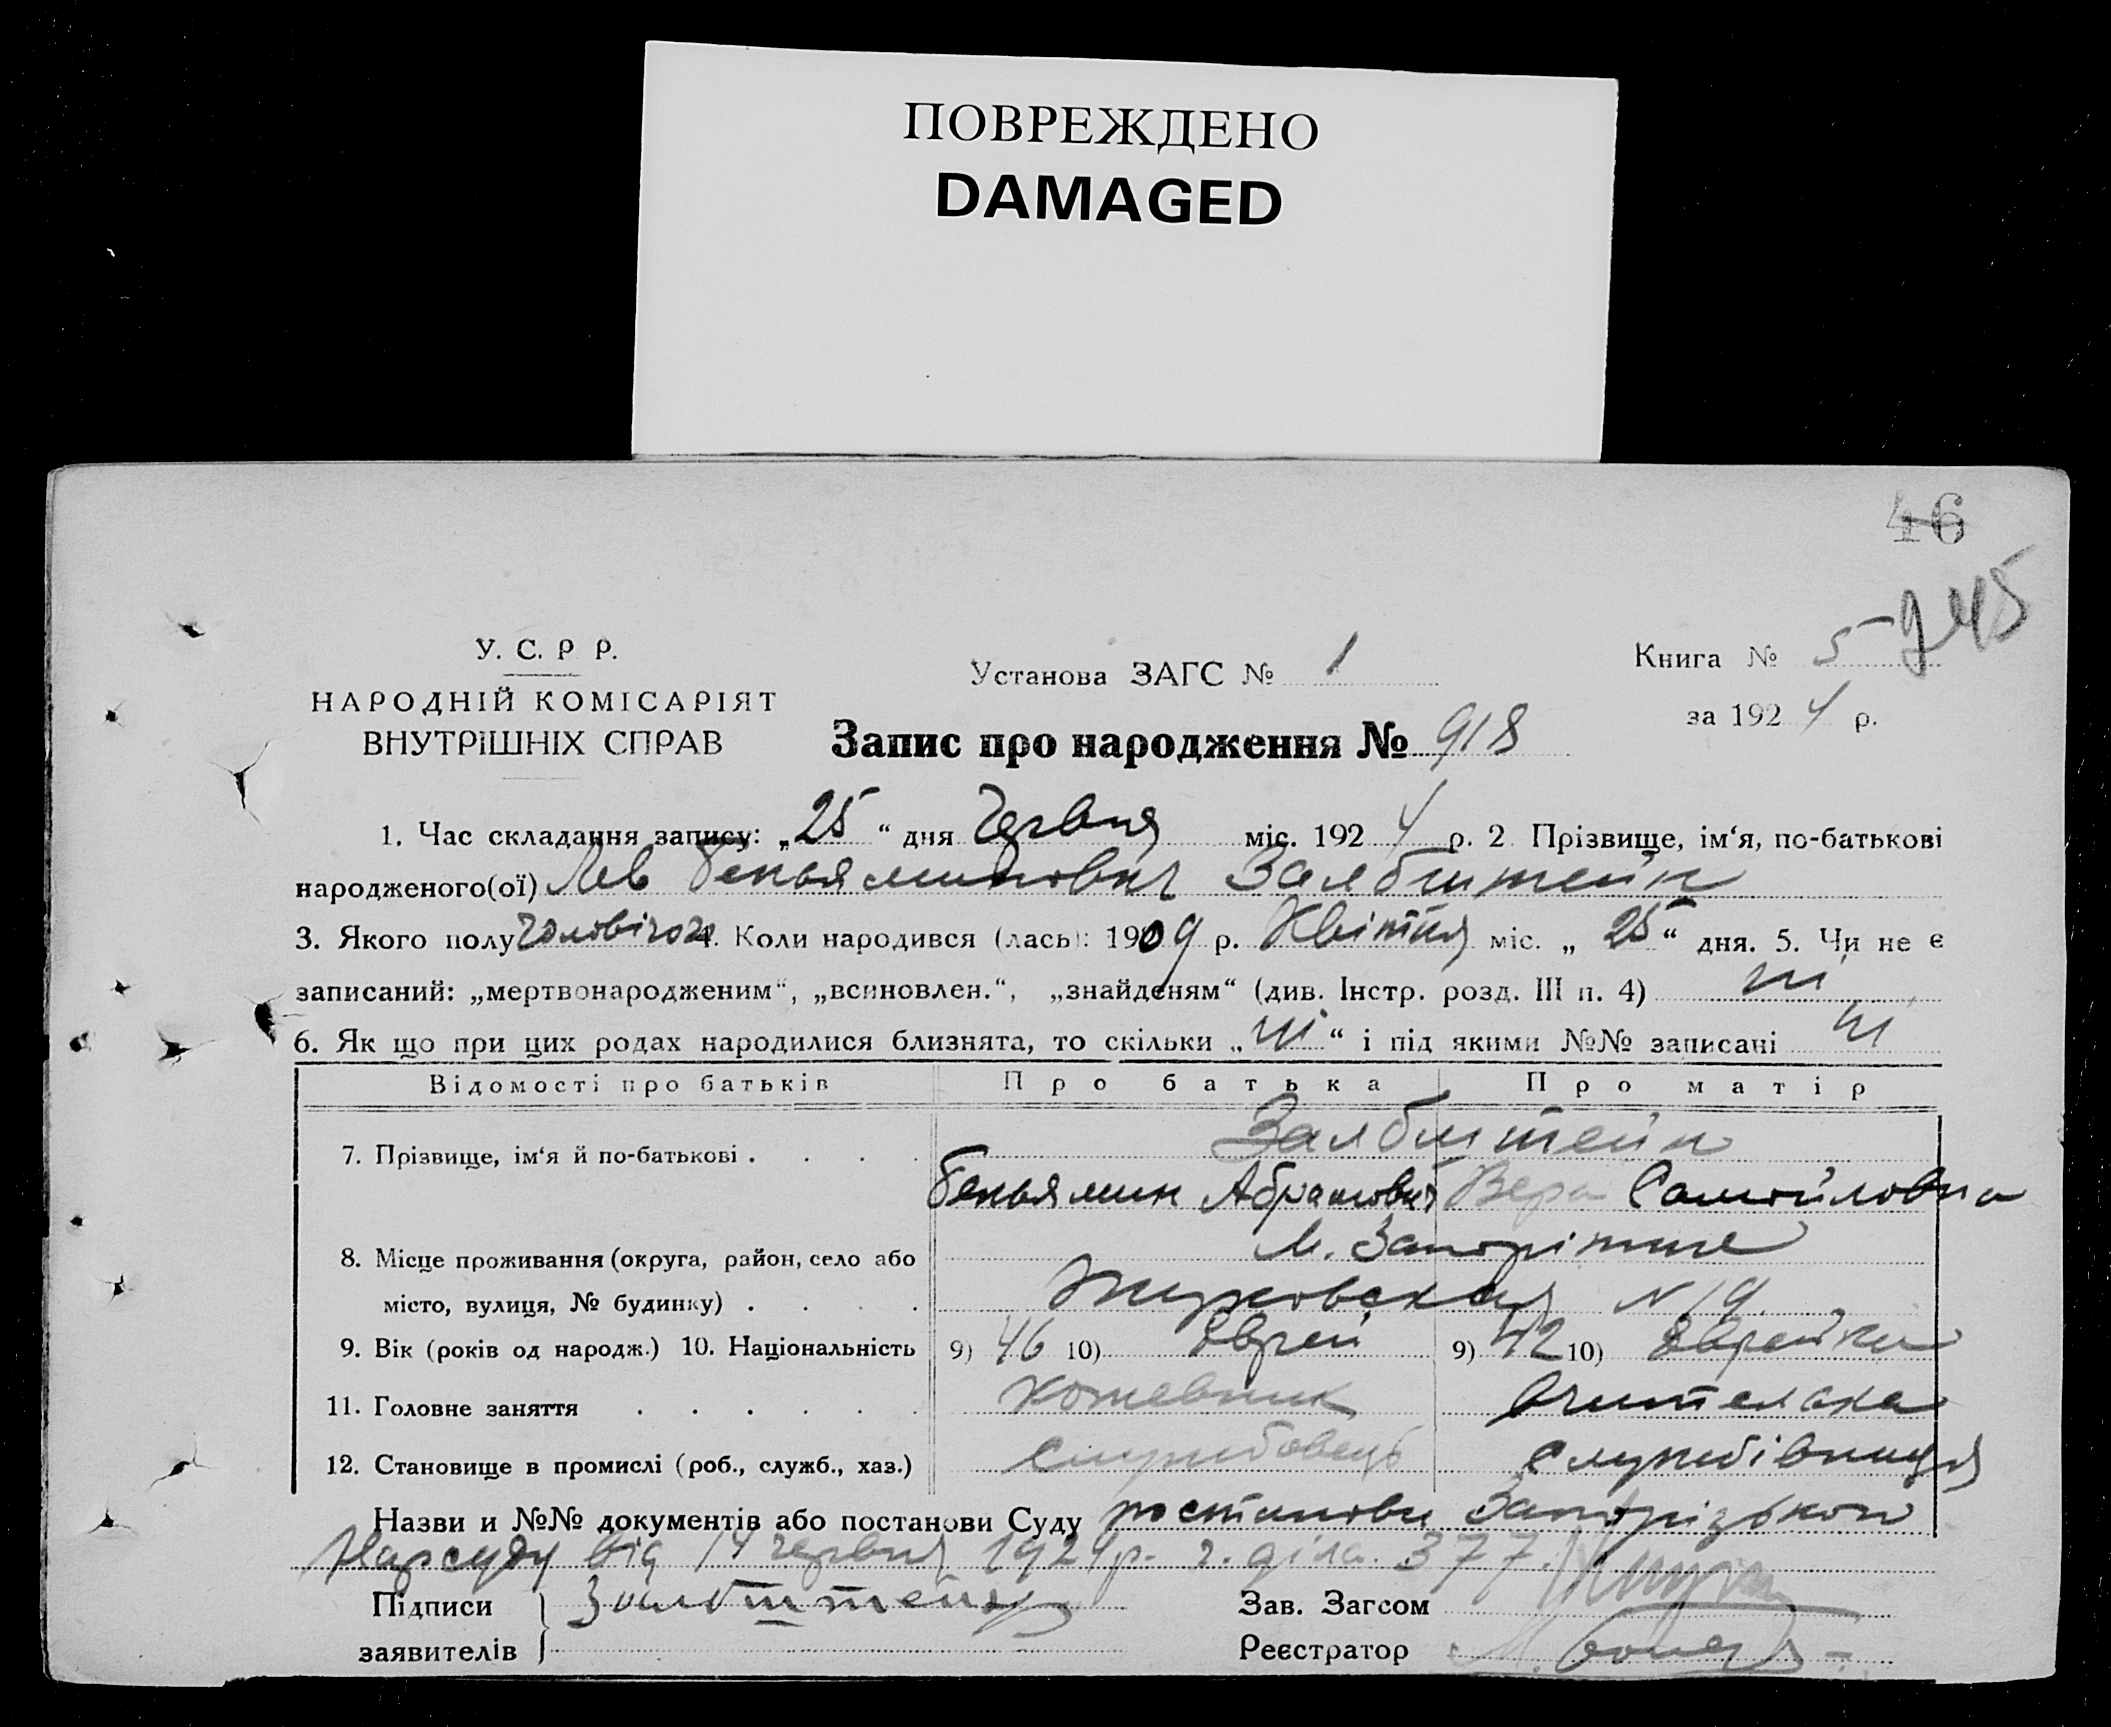 ПОВРЕЖДЕНО
DAMAGED
46
245
У. С. Р Р.
НАРОДНІЙ КОМІСАРІЯТ
ВНУТРІШНІХ СПРАВ
Установа ЗАГС № 1
Книга № 5
за 1924 р.
Запис про народження № 918
1. Час складання запису: „25“ дня Червня міс. 1924 р. 2 Прізвище, ім‘я, по-батькові
народженого(ої) Лев Беньяминович Залбштейн
3. Якого полу чоловічого 4. Коли народився (лась): 1909 р. Квітня міс. „25“ дня. 5. Чи не є
записаний: „мертвонародженим“, „всиновлен.“, „знайденям“ (див. Інстр. розд. III п. 4) ні
6. Як що при цих родах народилися близнята, то скільки „ні“ і під якими №№ записані ні
Відомості про батьків Про батька Про матір
7. Прізвище, ім‘я й по-батькові . . . . Залбштейн
Беньямин Абрамович Вера Самойловна
8. Місце проживання (округа, район, село або М. Запоріжже
місто, вулиця, № будинку) . . . . Жуковская N 19
9. Вік (років од народж.) 10. Національність 9) 46 10) Єврей 9) 42 10) Єврейка
11. Головне заняття . . . . . . кожевник
12. Становище в промислі (роб., служб., хаз.) службовець службівниця
Назви и №№ документів або постанови Суду постанови Запорізького
Нарсуду від 14 червня 1924 р. ч. діла. 377.
Підписи Залбштейн Зав. Загсом
заявителів Реєстратор